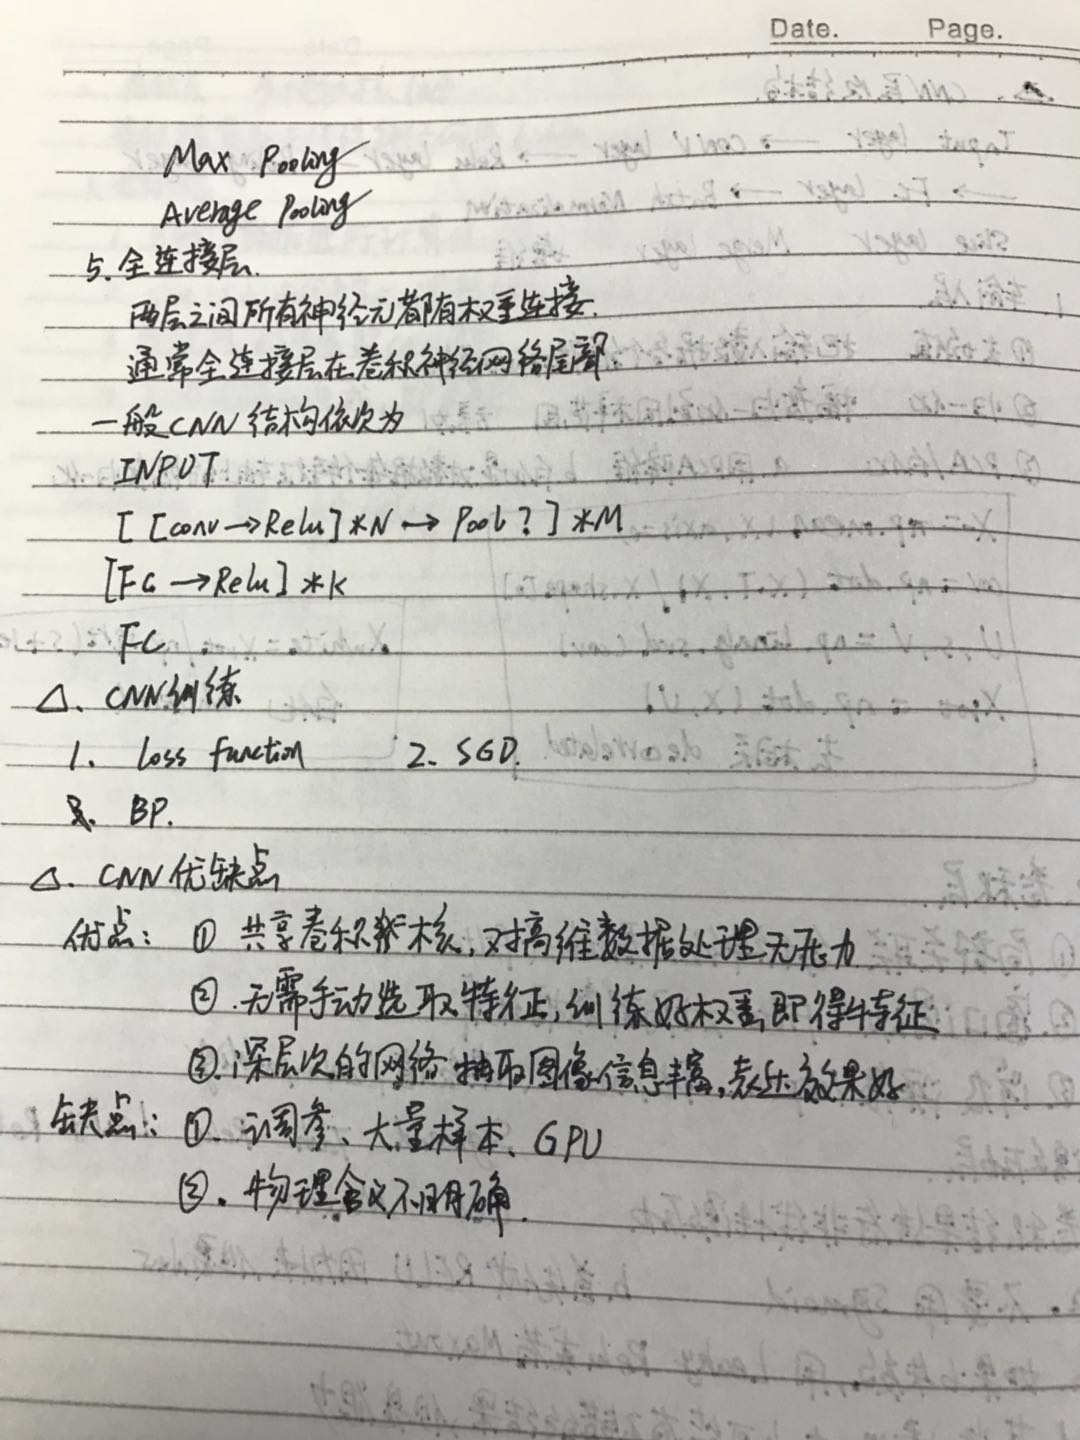 Date. Page.
Max Pooling
Average Pooling
5. 全连接层.
两层之间所有神经元都有权重连接.
通常全连接层在卷积神经网络尾部
一般CNN结构依次为
INPUT
[ [conv→Relu]*N → Pool? ]*M
[FC→Relu]*K
FC
△. CNN训练
1. Loss function 2. SGD.
BP.
△. CNN优缺点
优点: ① 共享卷积核, 对高维数据处理无压力
② 无需手动选取特征, 训练好权重, 即得特征
③ 深层次的网络 抽取图像信息丰富, 表达效果好
缺点: ①. 调参、大量样本、GPU
②. 物理含义不明确.